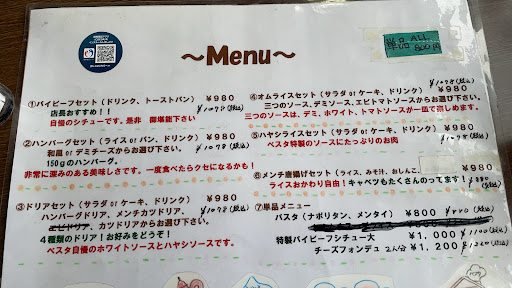 単品 ALL
800円
～Menu～
①パイビーフセット（ドリンク、トーストパン） ￥９８０
￥1078(税込)
店長おすすめ！！
自慢のシチューです。是非 御堪能下さい
②ハンバーグセット（ライス or パン、ドリンク） ￥９８０
￥1078(税込)
和風 or デミチーズからお選び下さい。
150ｇのハンバーグ。
非常に深みのある美味しさです。一度食べたらクセになるかも！
③ドリアセット（サラダ or ケーキ、ドリンク） ￥９８０
￥1078(税込)
ハンバーグドリア、メンチカツドリア、
エビドリア、カツドリアからお選び下さい。
４種類のドリア！お好みをどうぞ！
ベスタ自慢のホワイトソースとハヤシソースです。
￥1078(税込)
④オムライスセット（サラダ or ケーキ、ドリンク） ￥９８０
三つのソース、デミソース、エビトマトソースからお選び下さい。
三つのソースは、デミ、ホワイト、トマトソースが一皿で楽しめます。
⑤ハヤシライスセット（サラダ or ケーキ、ドリンク） ￥９８０
ベスタ特製のソースにたっぷりのお肉
￥1078(税込)
⑥メンチ唐揚げセット（ライス、みそ汁、おしんこ、
￥９８０
ライスおかわり自由！キャベツもたくさんのってます！
⑦単品メニュー
パスタ（ナポリタン、メンタイ） ￥８００
(税込)
特製パイビーフシチュー大 ￥１，０００
￥1100(税込)
チーズフォンデュ 2人分 ￥１，２００
(税込)